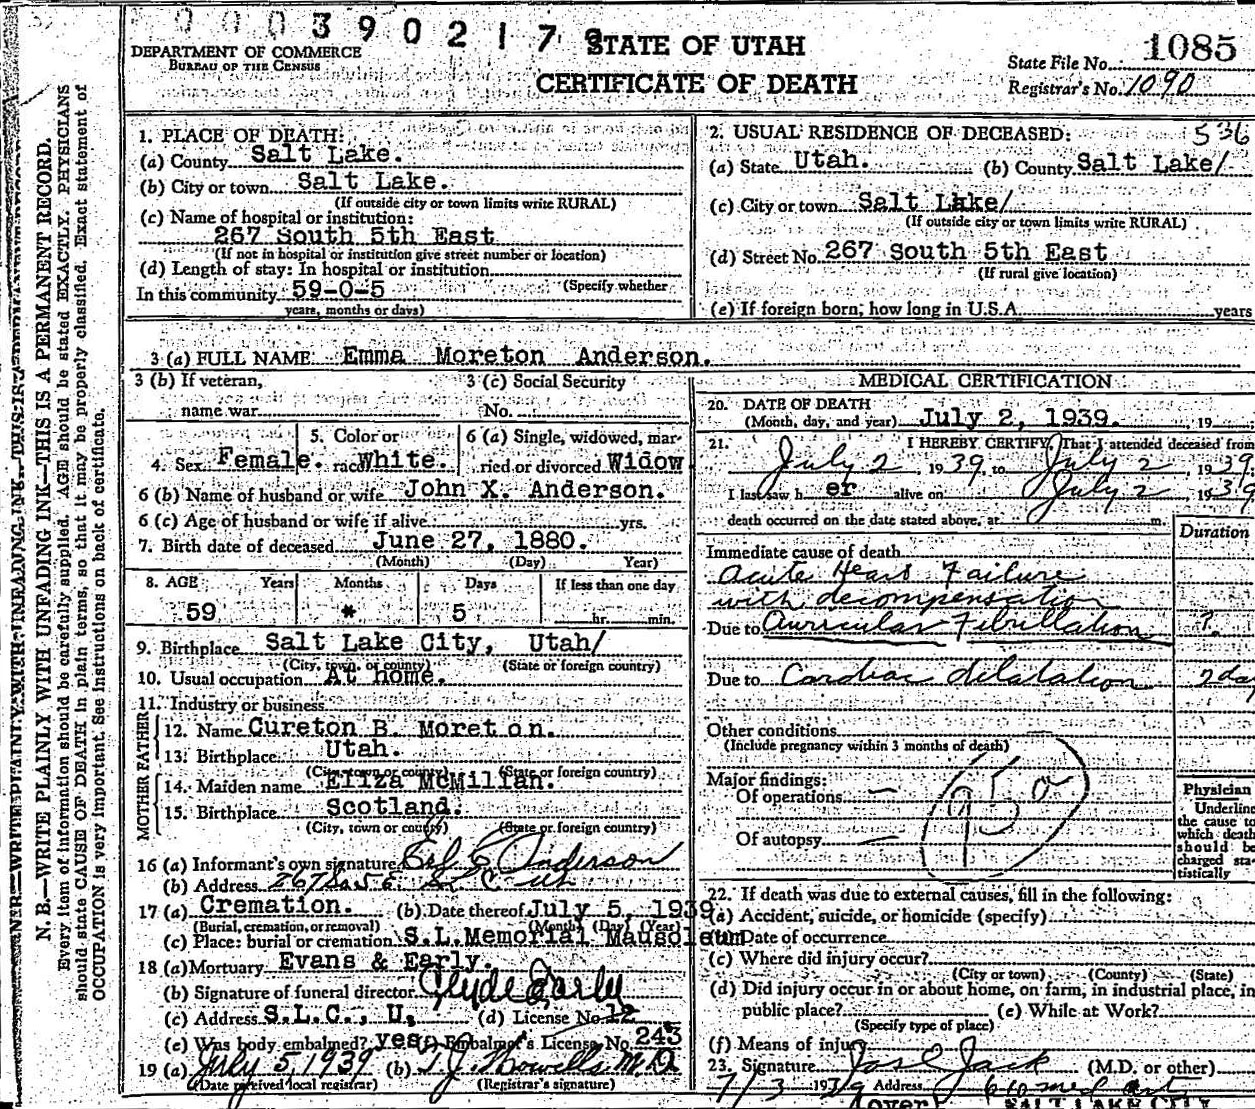 0003902178
DEPARTMENT OF COMMERCE
BUREAU OF THE CENSUS
STATE OF UTAH
CERTIFICATE OF DEATH
State File No. 1085
Registrar's No. 1090
N. B.—WRITE PLAINLY WITH UNFADING INK—THIS IS A PERMANENT RECORD.
Every item of information should be carefully supplied. AGE should be stated EXACTLY. PHYSICIANS
should state CAUSE OF DEATH in plain terms, so that it may be properly classified. Exact statement of
OCCUPATION is very important. See instructions on back of certificate.
1. PLACE OF DEATH:
(a) County Salt Lake.
(b) City or town Salt Lake.
(If outside city or town limits write RURAL)
(c) Name of hospital or institution:
267 South 5th East
(If not in hospital or institution give street number or location)
(d) Length of stay: In hospital or institution
(Specify whether
In this community 59-0-5
years, months or days)
2. USUAL RESIDENCE OF DECEASED: 536
(a) State Utah. (b) County Salt Lake/
(c) City or town Salt Lake/
(If outside city or town limits write RURAL)
(d) Street No. 267 South 5th East
(If rural give location)
(e) If foreign born, how long in U.S.A. years
3 (a) FULL NAME Emma Moreton Anderson.
3 (b) If veteran,
name war
3 (c) Social Security
No.
4. Sex Female. 5. Color or race White. 6 (a) Single, widowed, married or divorced Widow
6 (b) Name of husband or wife John X. Anderson.
6 (c) Age of husband or wife if alive yrs.
7. Birth date of deceased June 27, 1880.
(Month) (Day) Year)
8. AGE Years Months Days If less than one day
59 * 5 hr. min.
9. Birthplace Salt Lake City, Utah/
(City, town, or county) (State or foreign country)
10. Usual occupation At home.
11. Industry or business
FATHER
12. Name Cureton B. Moreton.
13. Birthplace Utah.
(City, town or county) (State or foreign country)
MOTHER
14. Maiden name Eliza McMillan.
15. Birthplace Scotland.
(City, town or county) (State or foreign country)
16 (a) Informant's own signature Anderson
(b) Address 267 So 5 E. S L C Ut
17 (a) Cremation. (b) Date thereof July 5, 1939
(Burial, cremation, or removal) (Month) (Day) (Year)
(c) Place: burial or cremation S.L.Memorial Mausoleum
18 (a) Mortuary Evans & Early.
(b) Signature of funeral director Clyde Early
(c) Address S.L.C., U, (d) License No. 12
(e) Was body embalmed? yes Embalmer's License No. 243
19 (a) July 5, 1939 (b) T. J. Howells M.D.
(Date received local registrar) (Registrar's signature)
MEDICAL CERTIFICATION
20. DATE OF DEATH
(Month, day, and year) July 2, 1939. 19
21. I HEREBY CERTIFY, That I attended deceased from
July 2, 1939, to July 2, 1939,
I last saw h er alive on July 2, 1939
death occurred on the date stated above, at m.
Duration
Immediate cause of death
Acute Heart Failure
with decompensation
Due to Auricular Fibrillation ?
Due to Cardiac dilatation 2 day
Other conditions
(Include pregnancy within 3 months of death)
Major findings:
Of operations —
Of autopsy —
95
Physician
Underline
the cause to
which death
should be
charged sta-
tistically
22. If death was due to external causes, fill in the following:
(a) Accident, suicide, or homicide (specify)
(b) Date of occurrence
(c) Where did injury occur?
(City or town) (County) (State)
(d) Did injury occur in or about home, on farm, in industrial place, in
public place? (e) While at Work?
(Specify type of place)
(f) Means of injury
23. Signature Jos C Jack (M.D. or other)
7/3 1939 Address 610 Med Art
(over) SALT LAKE CITY